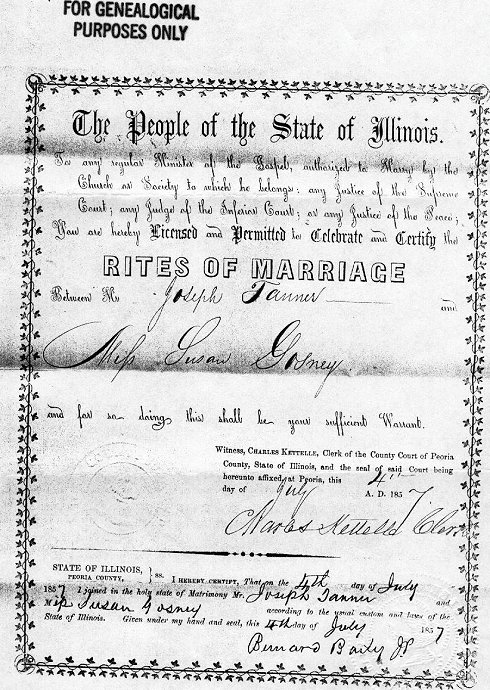 FOR GENEALOGICAL
PURPOSES ONLY
The People of the State of Illinois.
To any regular Minister of the Gospel, authorized to Marry by the
Church or Society to which he belongs: any Justice of the Supreme
Court; any Judge of the Inferior Court; or any Justice of the Peace;
You are hereby Licensed and Permitted to Celebrate and Certify the
RITES OF MARRIAGE
Between Mr Joseph Tanner and
Miss Susan Gosney.
and for so doing this shall be your sufficient Warrant.
Witness, CHARLES KETTELLE, Clerk of the County Court of Peoria
County, State of Illinois, and the seal of said Court being
hereunto affixed, at Peoria, this 4th
day of July A. D. 1857
Charles Kettelle Clerk
STATE OF ILLINOIS,
PEORIA COUNTY, } ss. I HEREBY CERTIFY, That on the 4th day of July
1857 I joined in the holy state of Matrimony Mr. Joseph Tanner and
Miss Susan Gosney according to the usual custom and laws of the
State of Illinois. Given under my hand and seal, this 4th day of July 1857
Bernard Baily JP